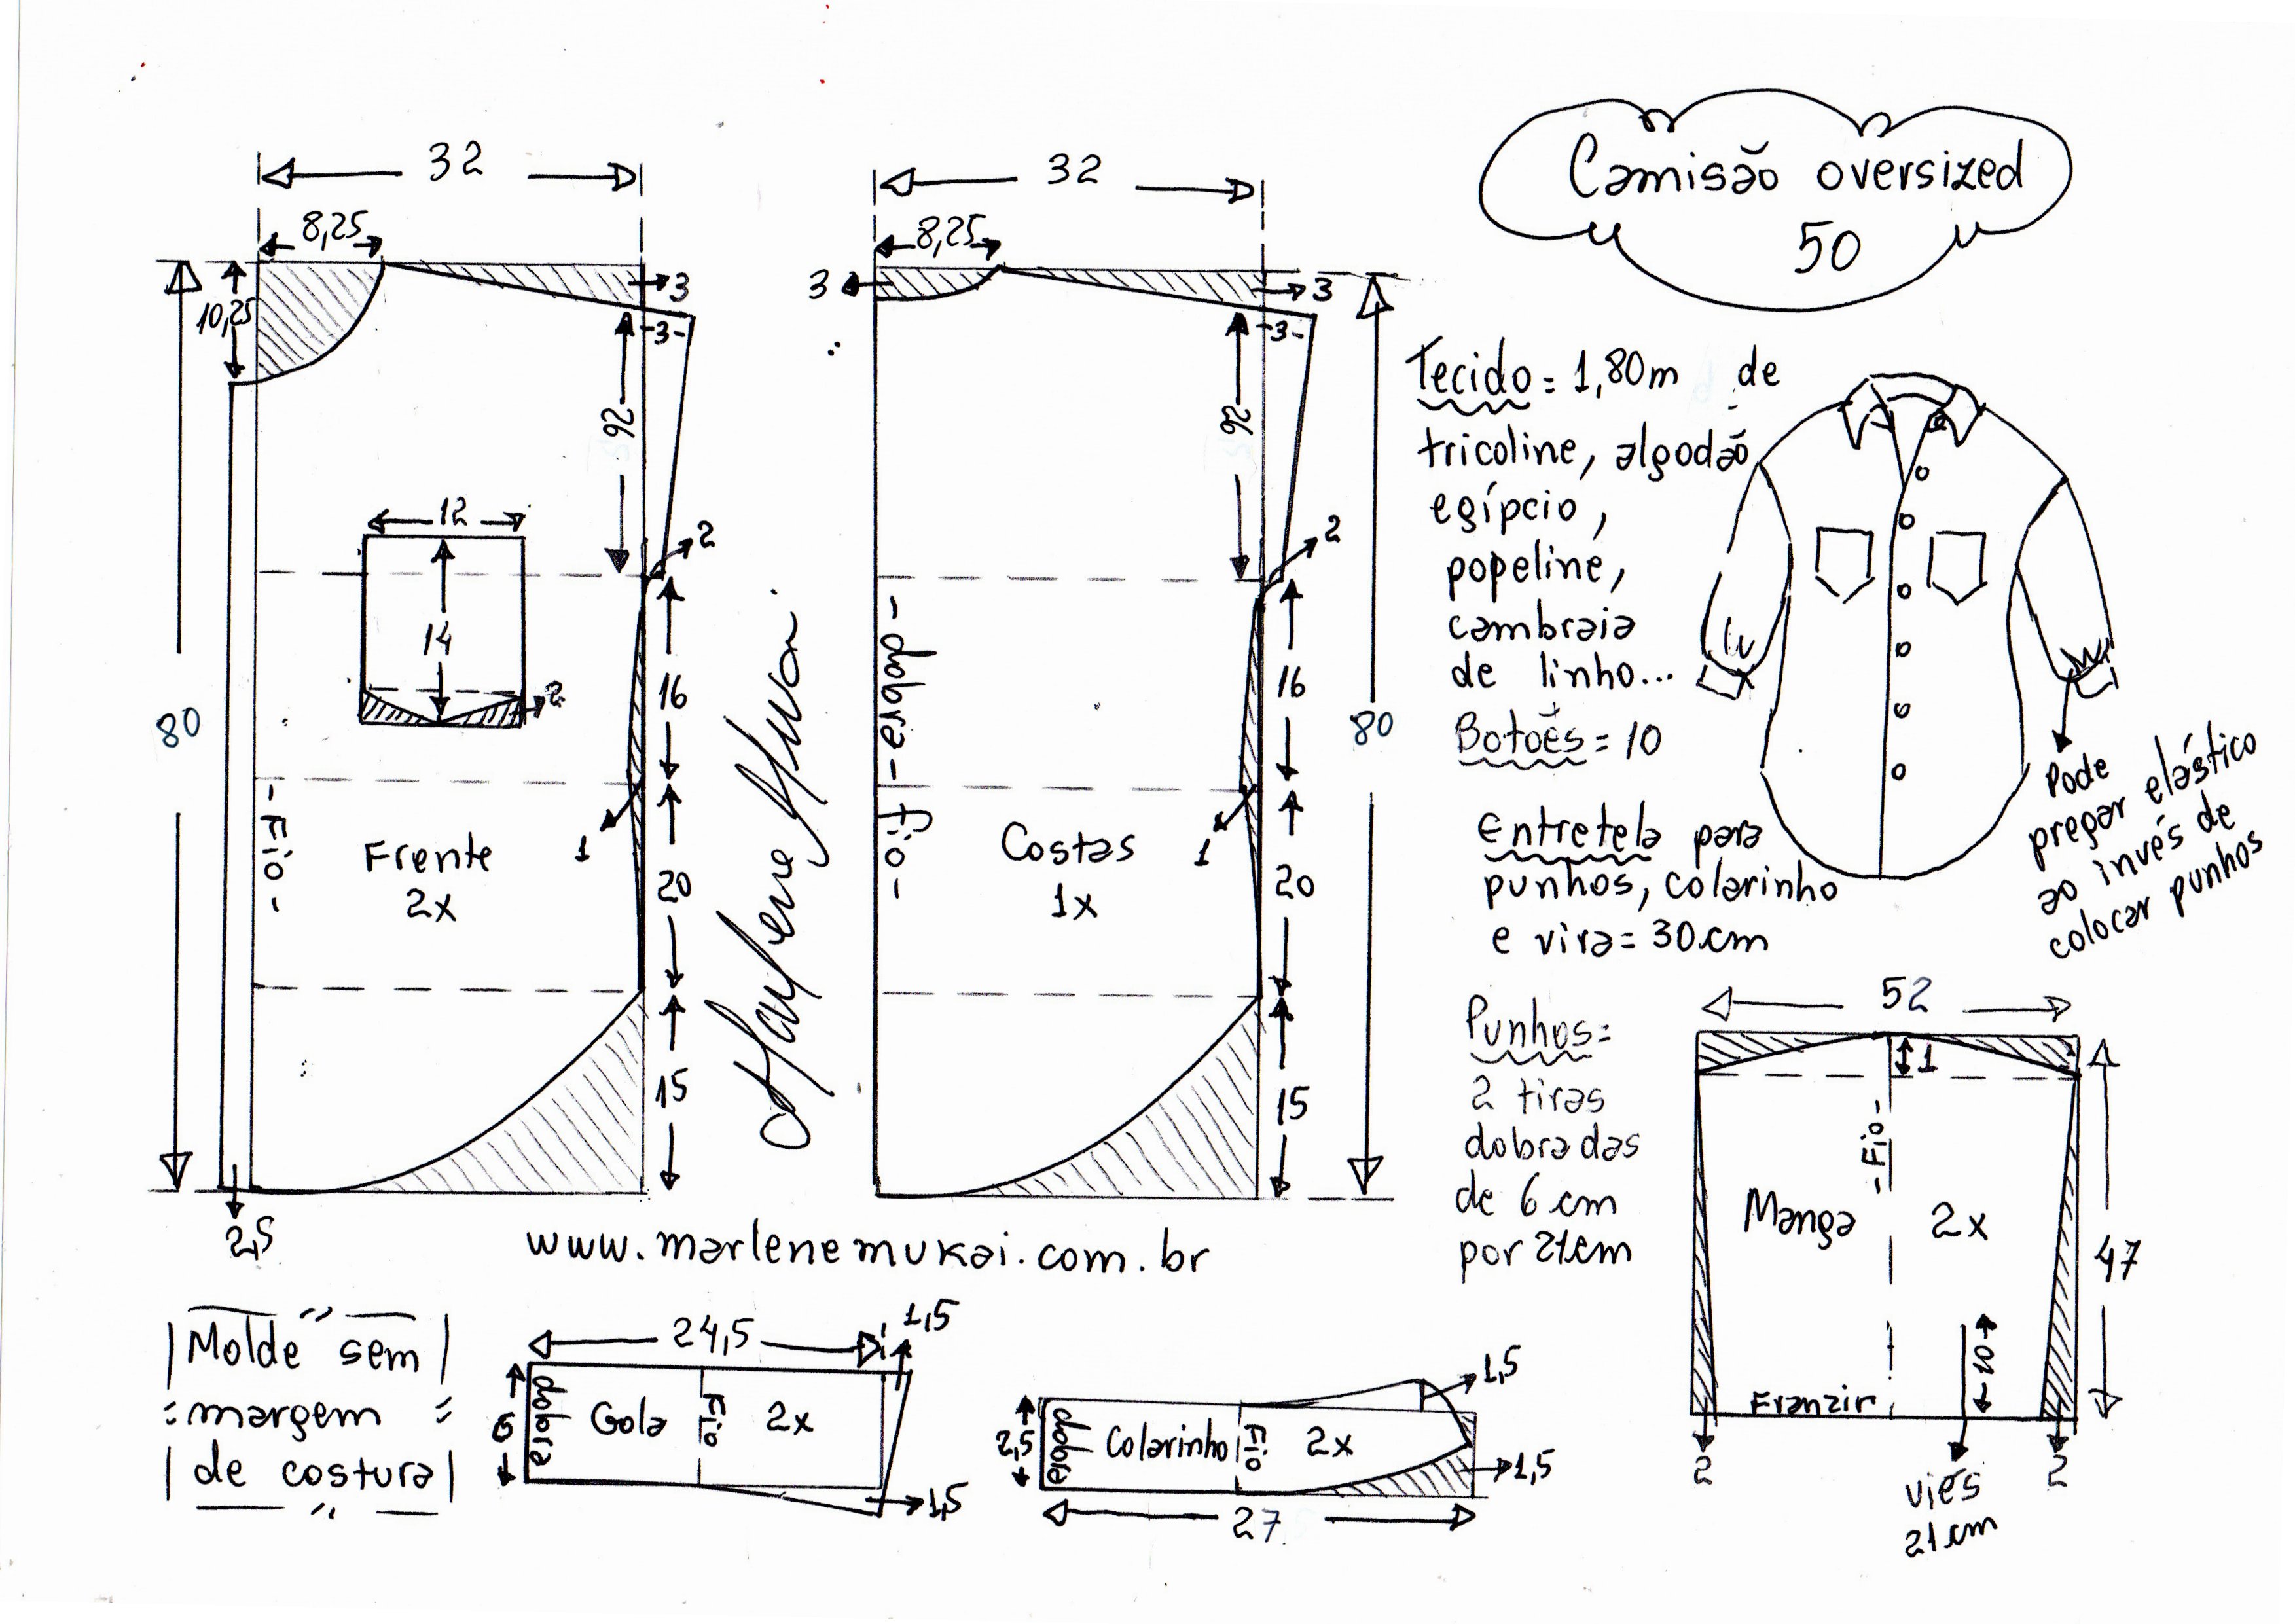 Camisão oversized
50
32
8,25
10,25
3
3
26
2
12
14
2
16
80
1
20
15
2,5
Fio
Frente
2x
Marlene Mukai
32
8,25
3
3
3
26
2
16
80
1
20
15
dobra
fio
Costas
1x
Tecido = 1,80m de
tricoline, algodão
egípcio,
popeline,
cambraia
de linho...
Botões = 10
Entretela para
punhos, colarinho
e vira = 30cm
Pode
pregar elástico
ao invés de
colocar punhos
Punhos =
2 tiras
dobradas
de 6 cm
por 21cm
52
1
Fio
Manga 2x
47
10
Franzir
2
2
viés
21cm
www.marlenemukai.com.br
Molde sem
margem
de costura
24,5
1,5
6
dobra
Gola
Fio
2x
1,5
2,5
dobra
Colarinho
Fio
2x
1,5
1,5
27